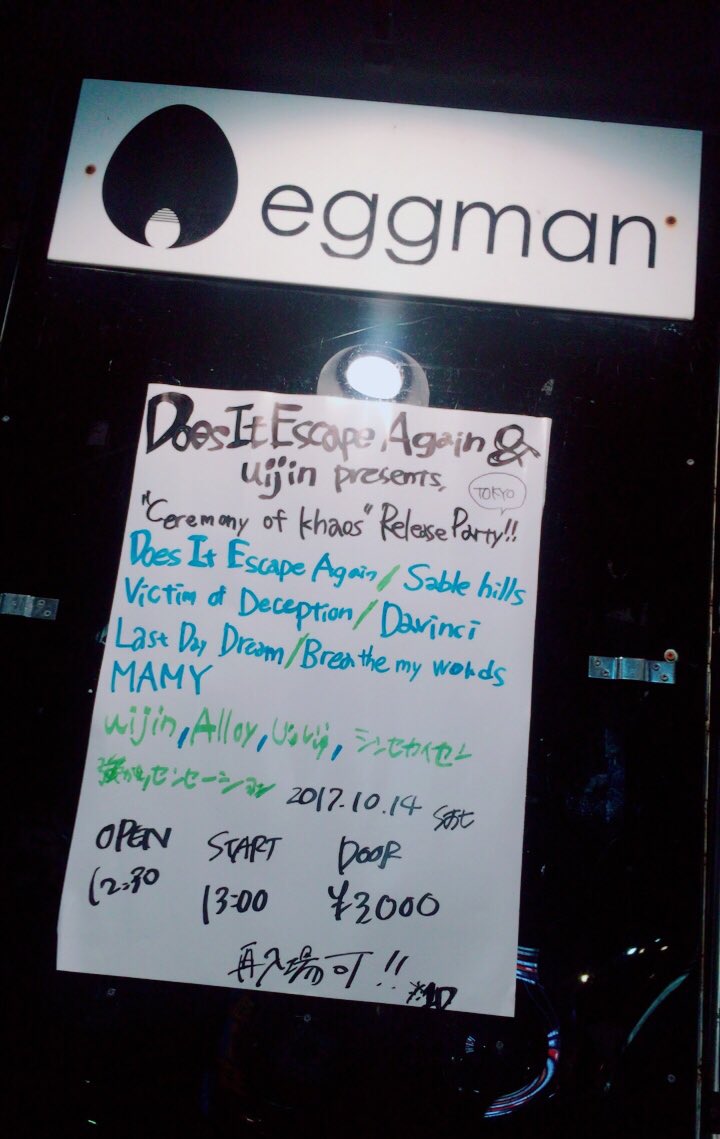 eggman
Does It Escape Again &
uijin presents,
TOKYO
"Ceremony of khaos" Release Party!!
Does It Escape Again / Sable hills
Victim of Deception / Davinci
Last Day Dream / Breathe my words
MAMY
uijin, Alloy, シンセカイセン
センセーション 2017.10.14 Sat
OPEN START DOOR
12:30 13:00 ¥3000
再入場可!!
※1D